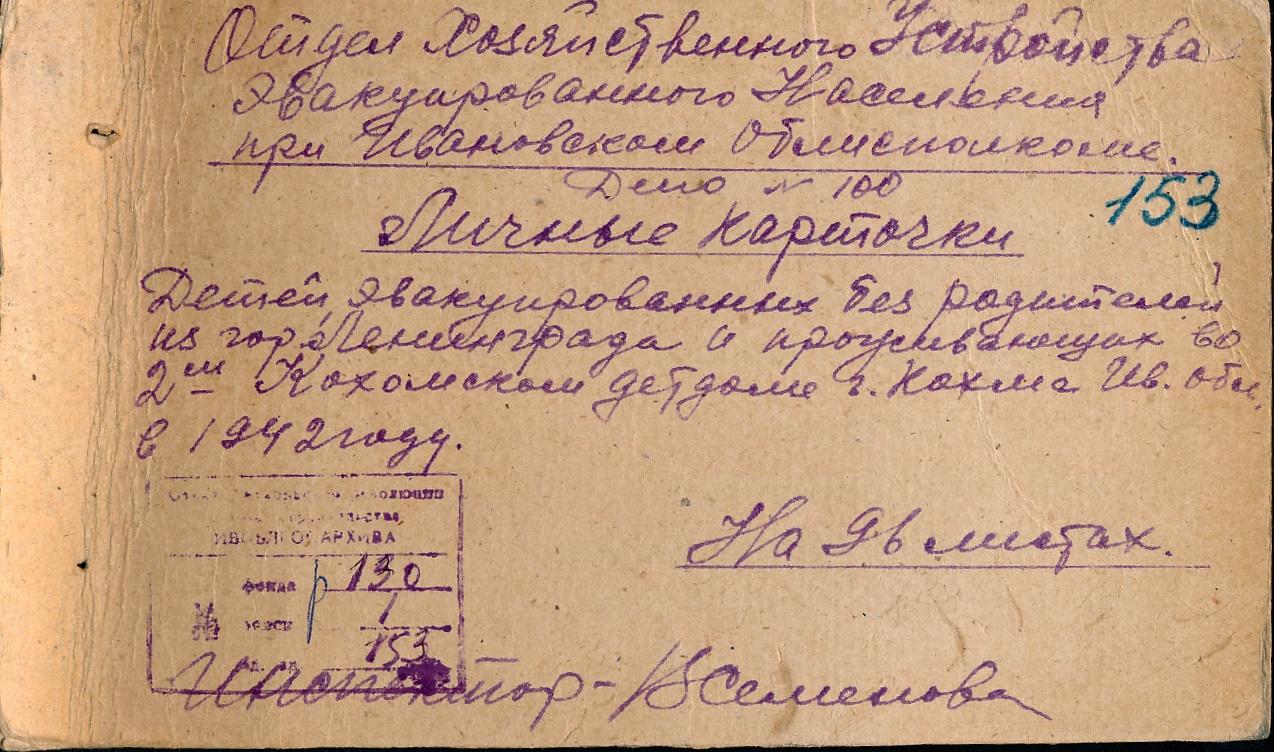 Отдел Хозяйственного Устройства
эвакуированного Населения
при Ивановском Облисполкоме.
Дело № 100
153
Личные карточки
Детей, эвакуированных без родителей
из гор. Ленинграда и проживающих во
2м Кохомском детдоме г. Кохма Ив. обл.
в 1942 году.
революции
ИВОБЛГОСАРХИВА
На листах.
фонда р 130
№ 1
153
Инспектор - Семенова